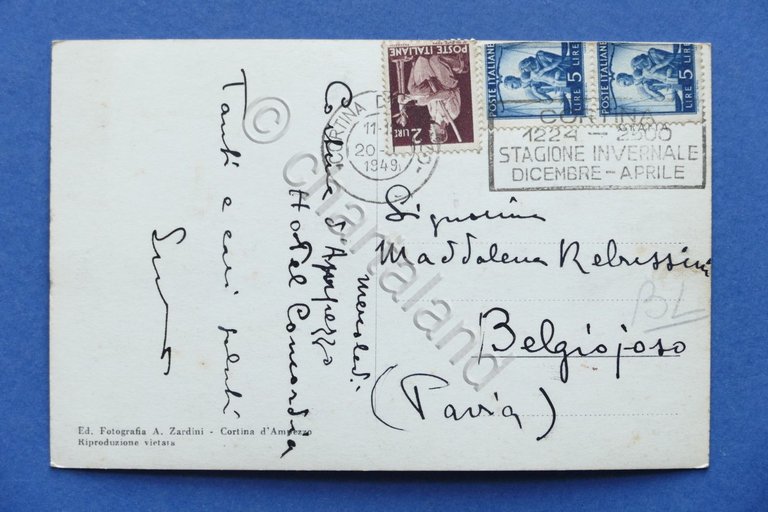 POSTE ITALIANE
2 LIRE
POSTE ITALIANE
LIRE 5 LIRE
POSTE ITALIANE
LIRE 5 LIRE
CORTINA
11-
20-
1949
CORTINA
1224 - 2500
STAGIONE INVERNALE
DICEMBRE - APRILE
Cortina d'Ampezzo
mercoledì
Hotel Concordia
Tanti e cari saluti
Signorina
Maddalena Rebussini
Belgiojoso
(Pavia)
BL
Ed. Fotografia A. Zardini - Cortina d'Ampezzo
Riproduzione vietata
© chartaland